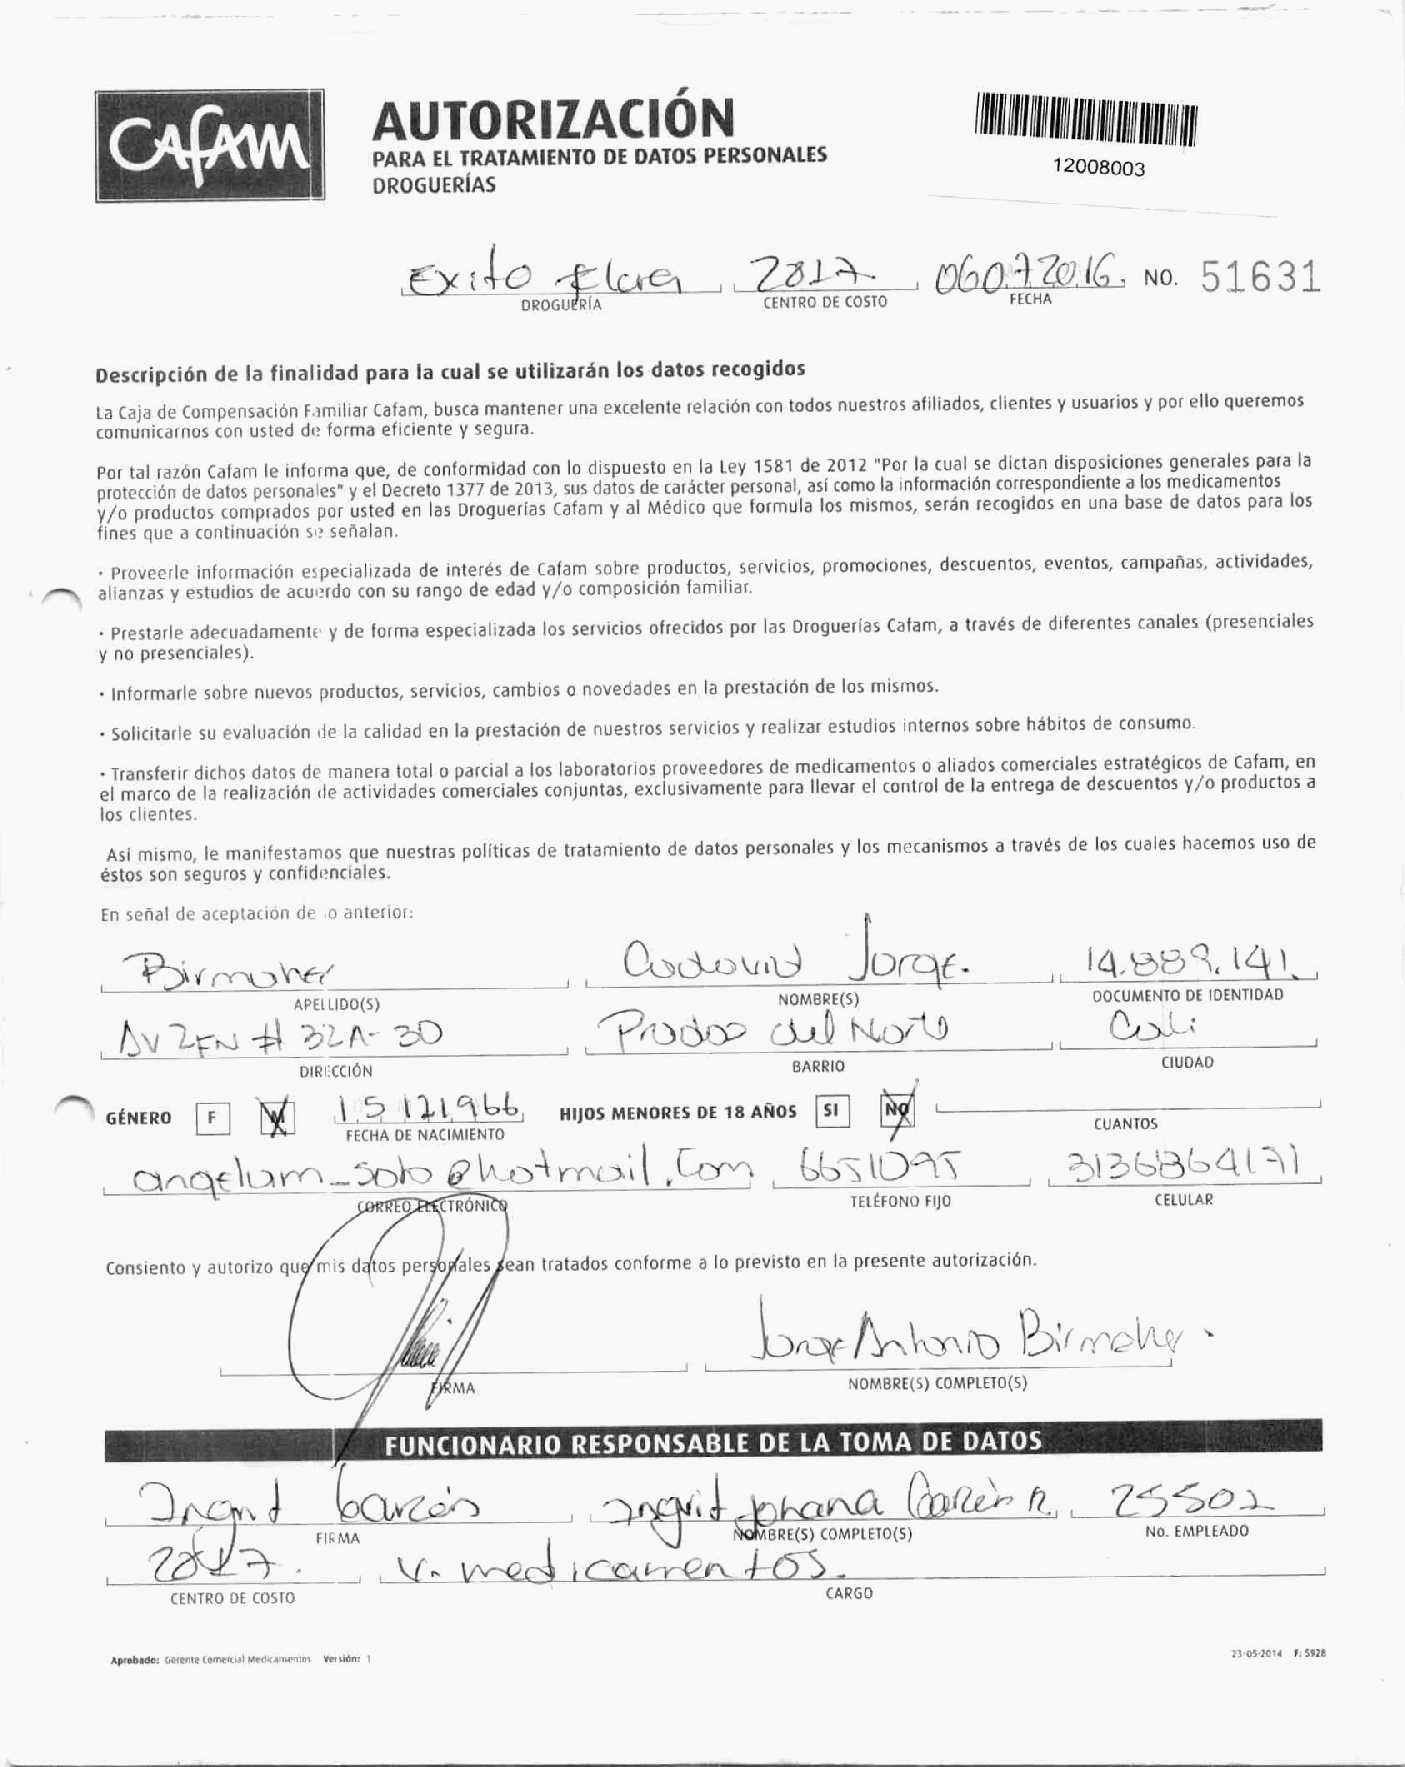 CAFAM
AUTORIZACIÓN
PARA EL TRATAMIENTO DE DATOS PERSONALES
DROGUERÍAS
12008003
Exito Flora 2817 06072016 NO. 51631
DROGUERÍA CENTRO DE COSTO FECHA
Descripción de la finalidad para la cual se utilizarán los datos recogidos
La Caja de Compensación Familiar Cafam, busca mantener una excelente relación con todos nuestros afiliados, clientes y usuarios y por ello queremos
comunicarnos con usted de forma eficiente y segura.
Por tal razón Cafam le informa que, de conformidad con lo dispuesto en la Ley 1581 de 2012 "Por la cual se dictan disposiciones generales para la
protección de datos personales" y el Decreto 1377 de 2013, sus datos de carácter personal, así como la información correspondiente a los medicamentos
y/o productos comprados por usted en las Droguerías Cafam y al Médico que formula los mismos, serán recogidos en una base de datos para los
fines que a continuación se señalan.
· Proveerle información especializada de interés de Cafam sobre productos, servicios, promociones, descuentos, eventos, campañas, actividades,
alianzas y estudios de acuerdo con su rango de edad y/o composición familiar.
· Prestarle adecuadamente y de forma especializada los servicios ofrecidos por las Droguerías Cafam, a través de diferentes canales (presenciales
y no presenciales).
· Informarle sobre nuevos productos, servicios, cambios o novedades en la prestación de los mismos.
· Solicitarle su evaluación de la calidad en la prestación de nuestros servicios y realizar estudios internos sobre hábitos de consumo.
· Transferir dichos datos de manera total o parcial a los laboratorios proveedores de medicamentos o aliados comerciales estratégicos de Cafam, en
el marco de la realización de actividades comerciales conjuntas, exclusivamente para llevar el control de la entrega de descuentos y/o productos a
los clientes.
Así mismo, le manifestamos que nuestras políticas de tratamiento de datos personales y los mecanismos a través de los cuales hacemos uso de
éstos son seguros y confidenciales.
En señal de aceptación de lo anterior:
Birmaher Jorge. 14.889.141
APELLIDO(S) NOMBRE(S) DOCUMENTO DE IDENTIDAD
AV 2FN # 32A-30 Prados del Norte Cali
DIRECCIÓN BARRIO CIUDAD
GÉNERO F M 15121966 HIJOS MENORES DE 18 AÑOS SI NO
FECHA DE NACIMIENTO CUANTOS
angelum_soto@hotmail.com 6651095 3136864171
CORREO ELECTRÓNICO TELÉFONO FIJO CELULAR
Consiento y autorizo que mis datos personales sean tratados conforme a lo previsto en la presente autorización.
Jorge Antonio Birmaher.
FIRMA NOMBRE(S) COMPLETO(S)
FUNCIONARIO RESPONSABLE DE LA TOMA DE DATOS
Ingrid Garzón Ingrid Johana Garzón R. 25502
FIRMA NOMBRE(S) COMPLETO(S) No. EMPLEADO
2817. V. medicamentos.
CENTRO DE COSTO CARGO
Aprobado: Gerente Comercial Medicamentos Versión: 1 23-05-2014 F: 5928